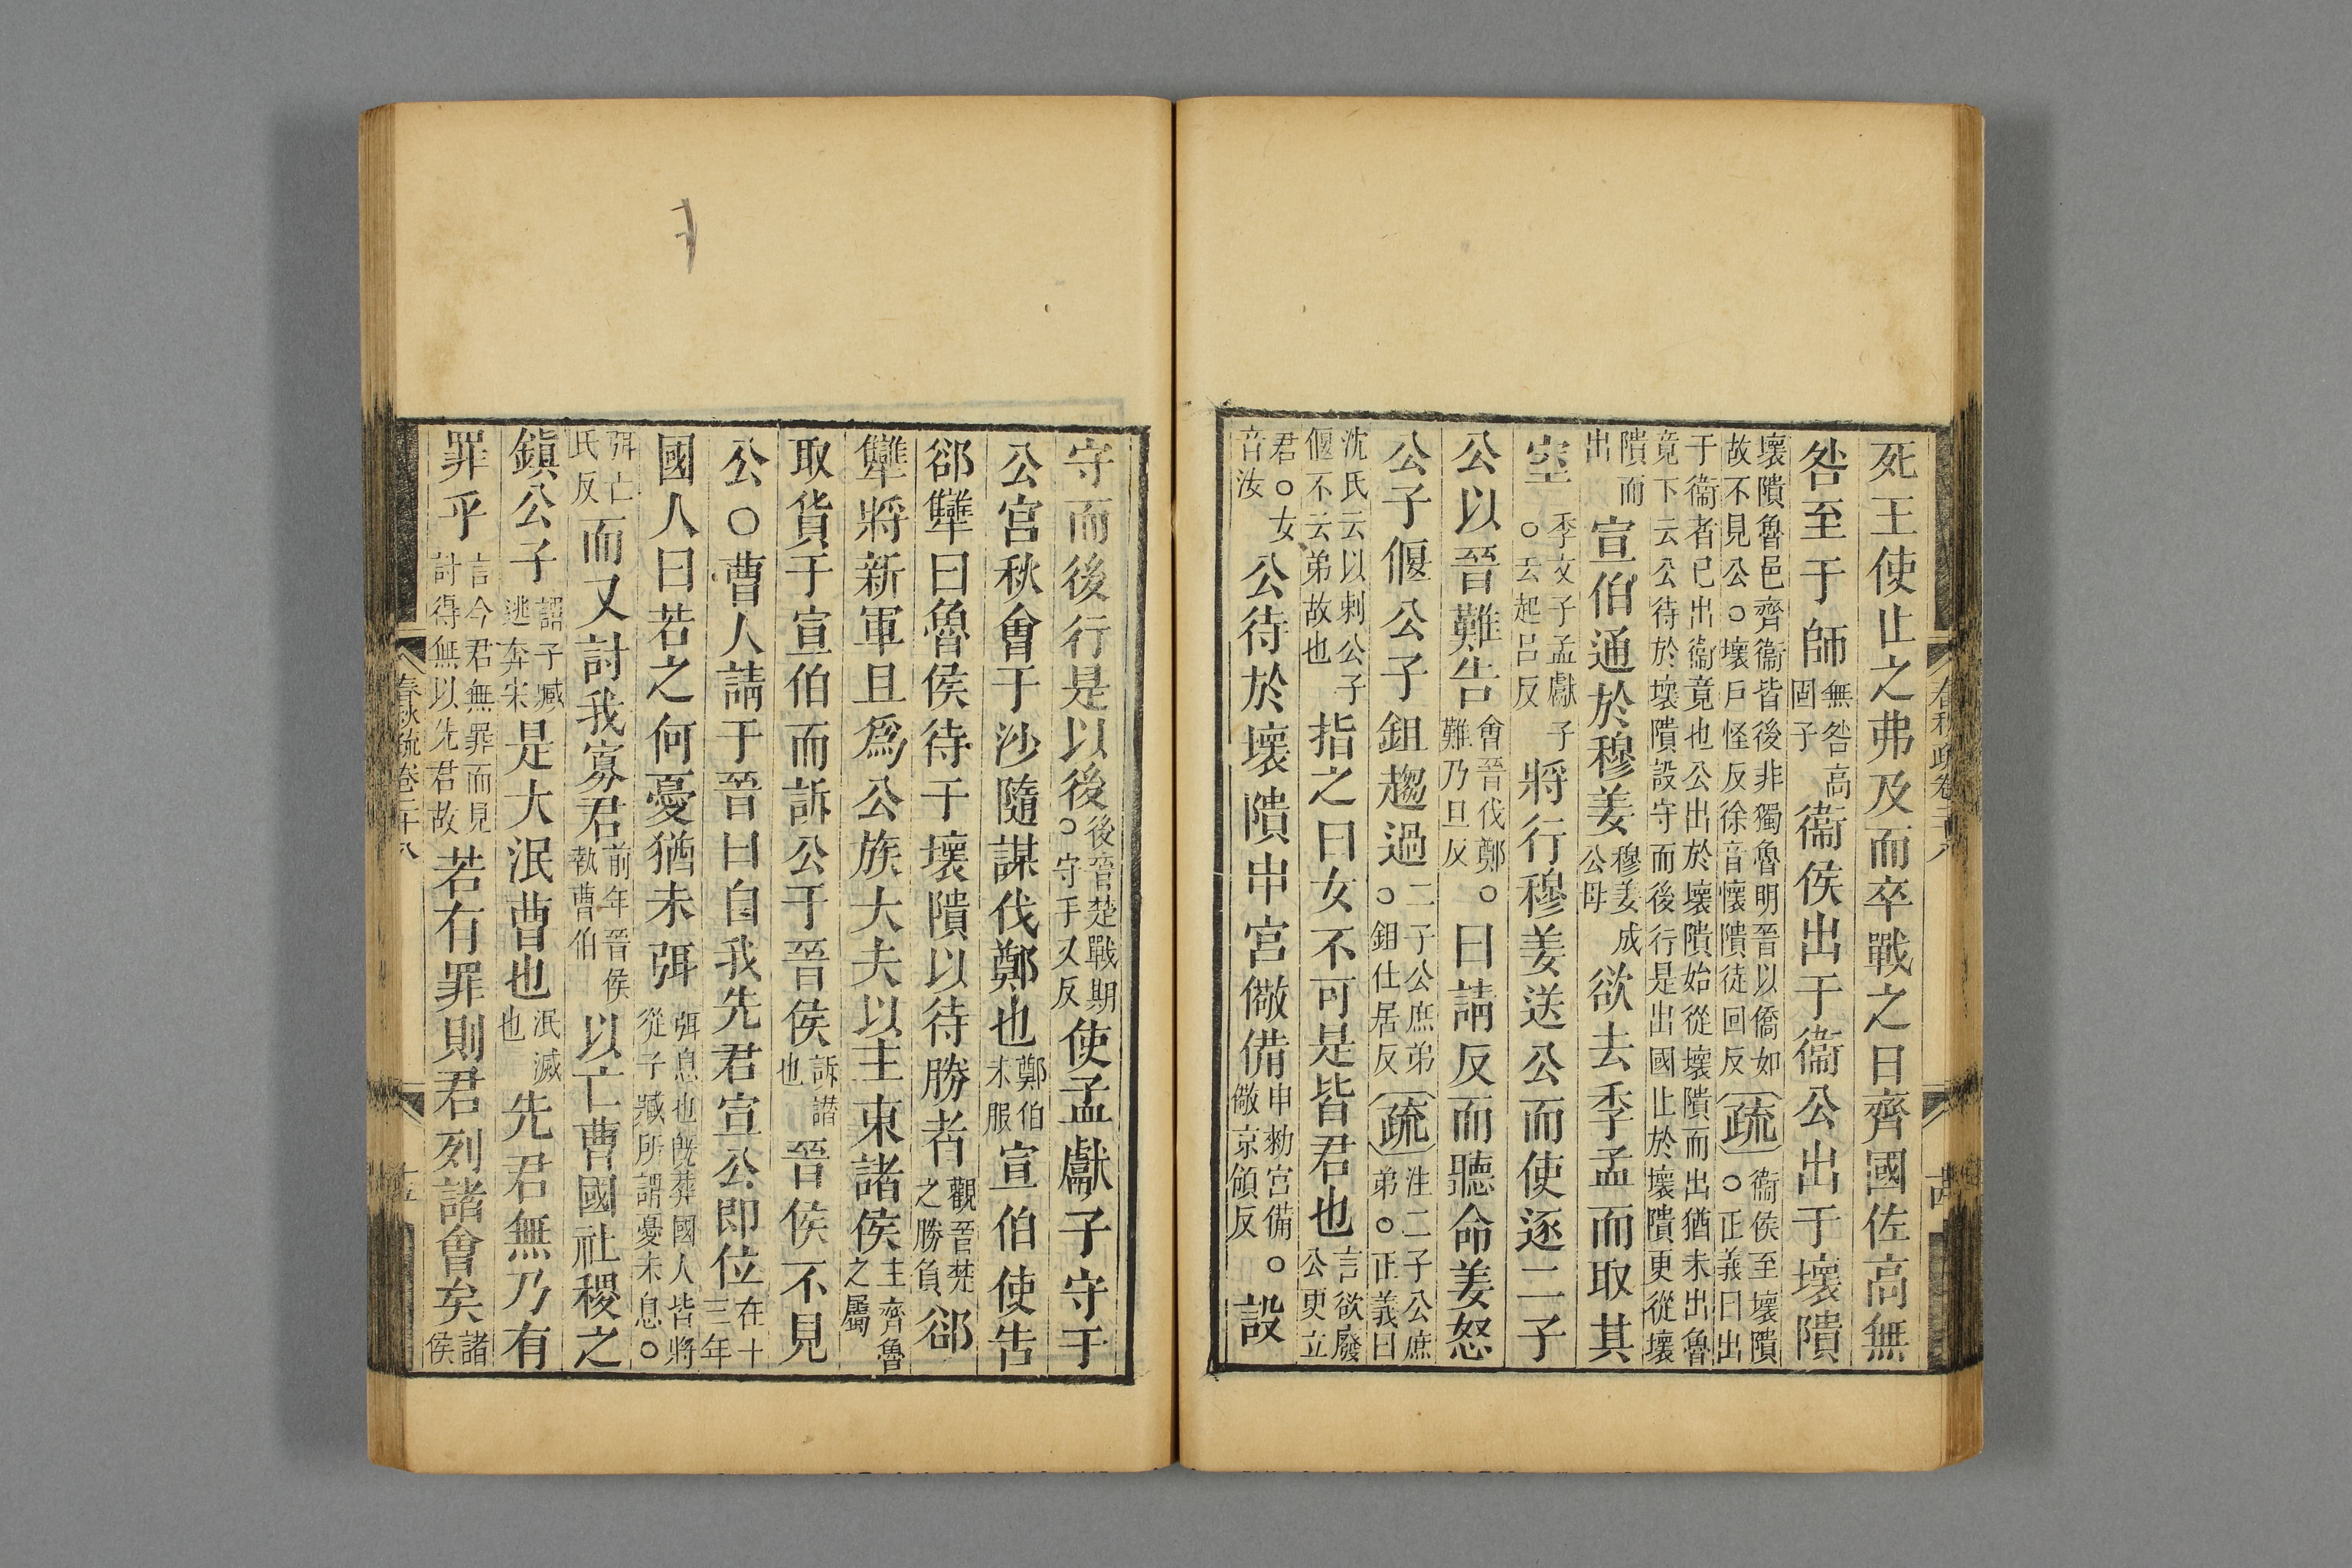 春秋疏卷二十八
死王使止之弗及而卒戰之日齊國佐高無
咎至于師無咎高固子衞侯出于衞公出于壞隤
壞隤魯邑齊衞皆後非獨魯明晉以僑如故不見公○壞戶怪反徐音懷隤徒回反疏衞侯至壞隤○正義曰出
于衞者已出衞竟也公出於壞隤始從壞隤而出猶未出魯竟下云公待於壞隤設守而後行是出國止於壞隤更從壞
隤而出宣伯通於穆姜穆姜成公母欲去季孟而取其
室季文子孟獻子○去起呂反將行穆姜送公而使逐二子
公以晉難告會晉伐鄭○難乃旦反曰請反而聽命姜怒
公子偃公子鉏趨過二子公庶弟○鉏仕居反疏注二子公庶弟○正義曰
沈氏云以刺公子偃不云弟故也指之曰女不可是皆君也言欲廢公更立
君○女音汝公待於壞隤申宮儆備申勑宮備○儆京領反設
守而後行是以後後晉楚戰期○守手又反使孟獻子守于
公宮秋會于沙隨謀伐鄭也鄭伯未服宣伯使告
郤犨曰魯侯待于壞隤以待勝者觀晉楚之勝負郤
犨將新軍且爲公族大夫以主東諸侯主齊魯之屬
取貨于宣伯而訴公于晉侯訴譖也晉侯不見
公○曹人請于晉曰自我先君宣公即位在十三年
國人曰若之何憂猶未弭弭息也旣葬國人皆將從子臧所謂憂未息○
弭亡氏反而又討我寡君前年晉侯執曹伯以亡曹國社稷之
鎭公子謂子臧逃奔宋是大泯曹也泯滅也先君無乃有
罪乎言今君無罪而見討得無以先君故若有罪則君列諸會矣諸侯
春秋疏卷二十八